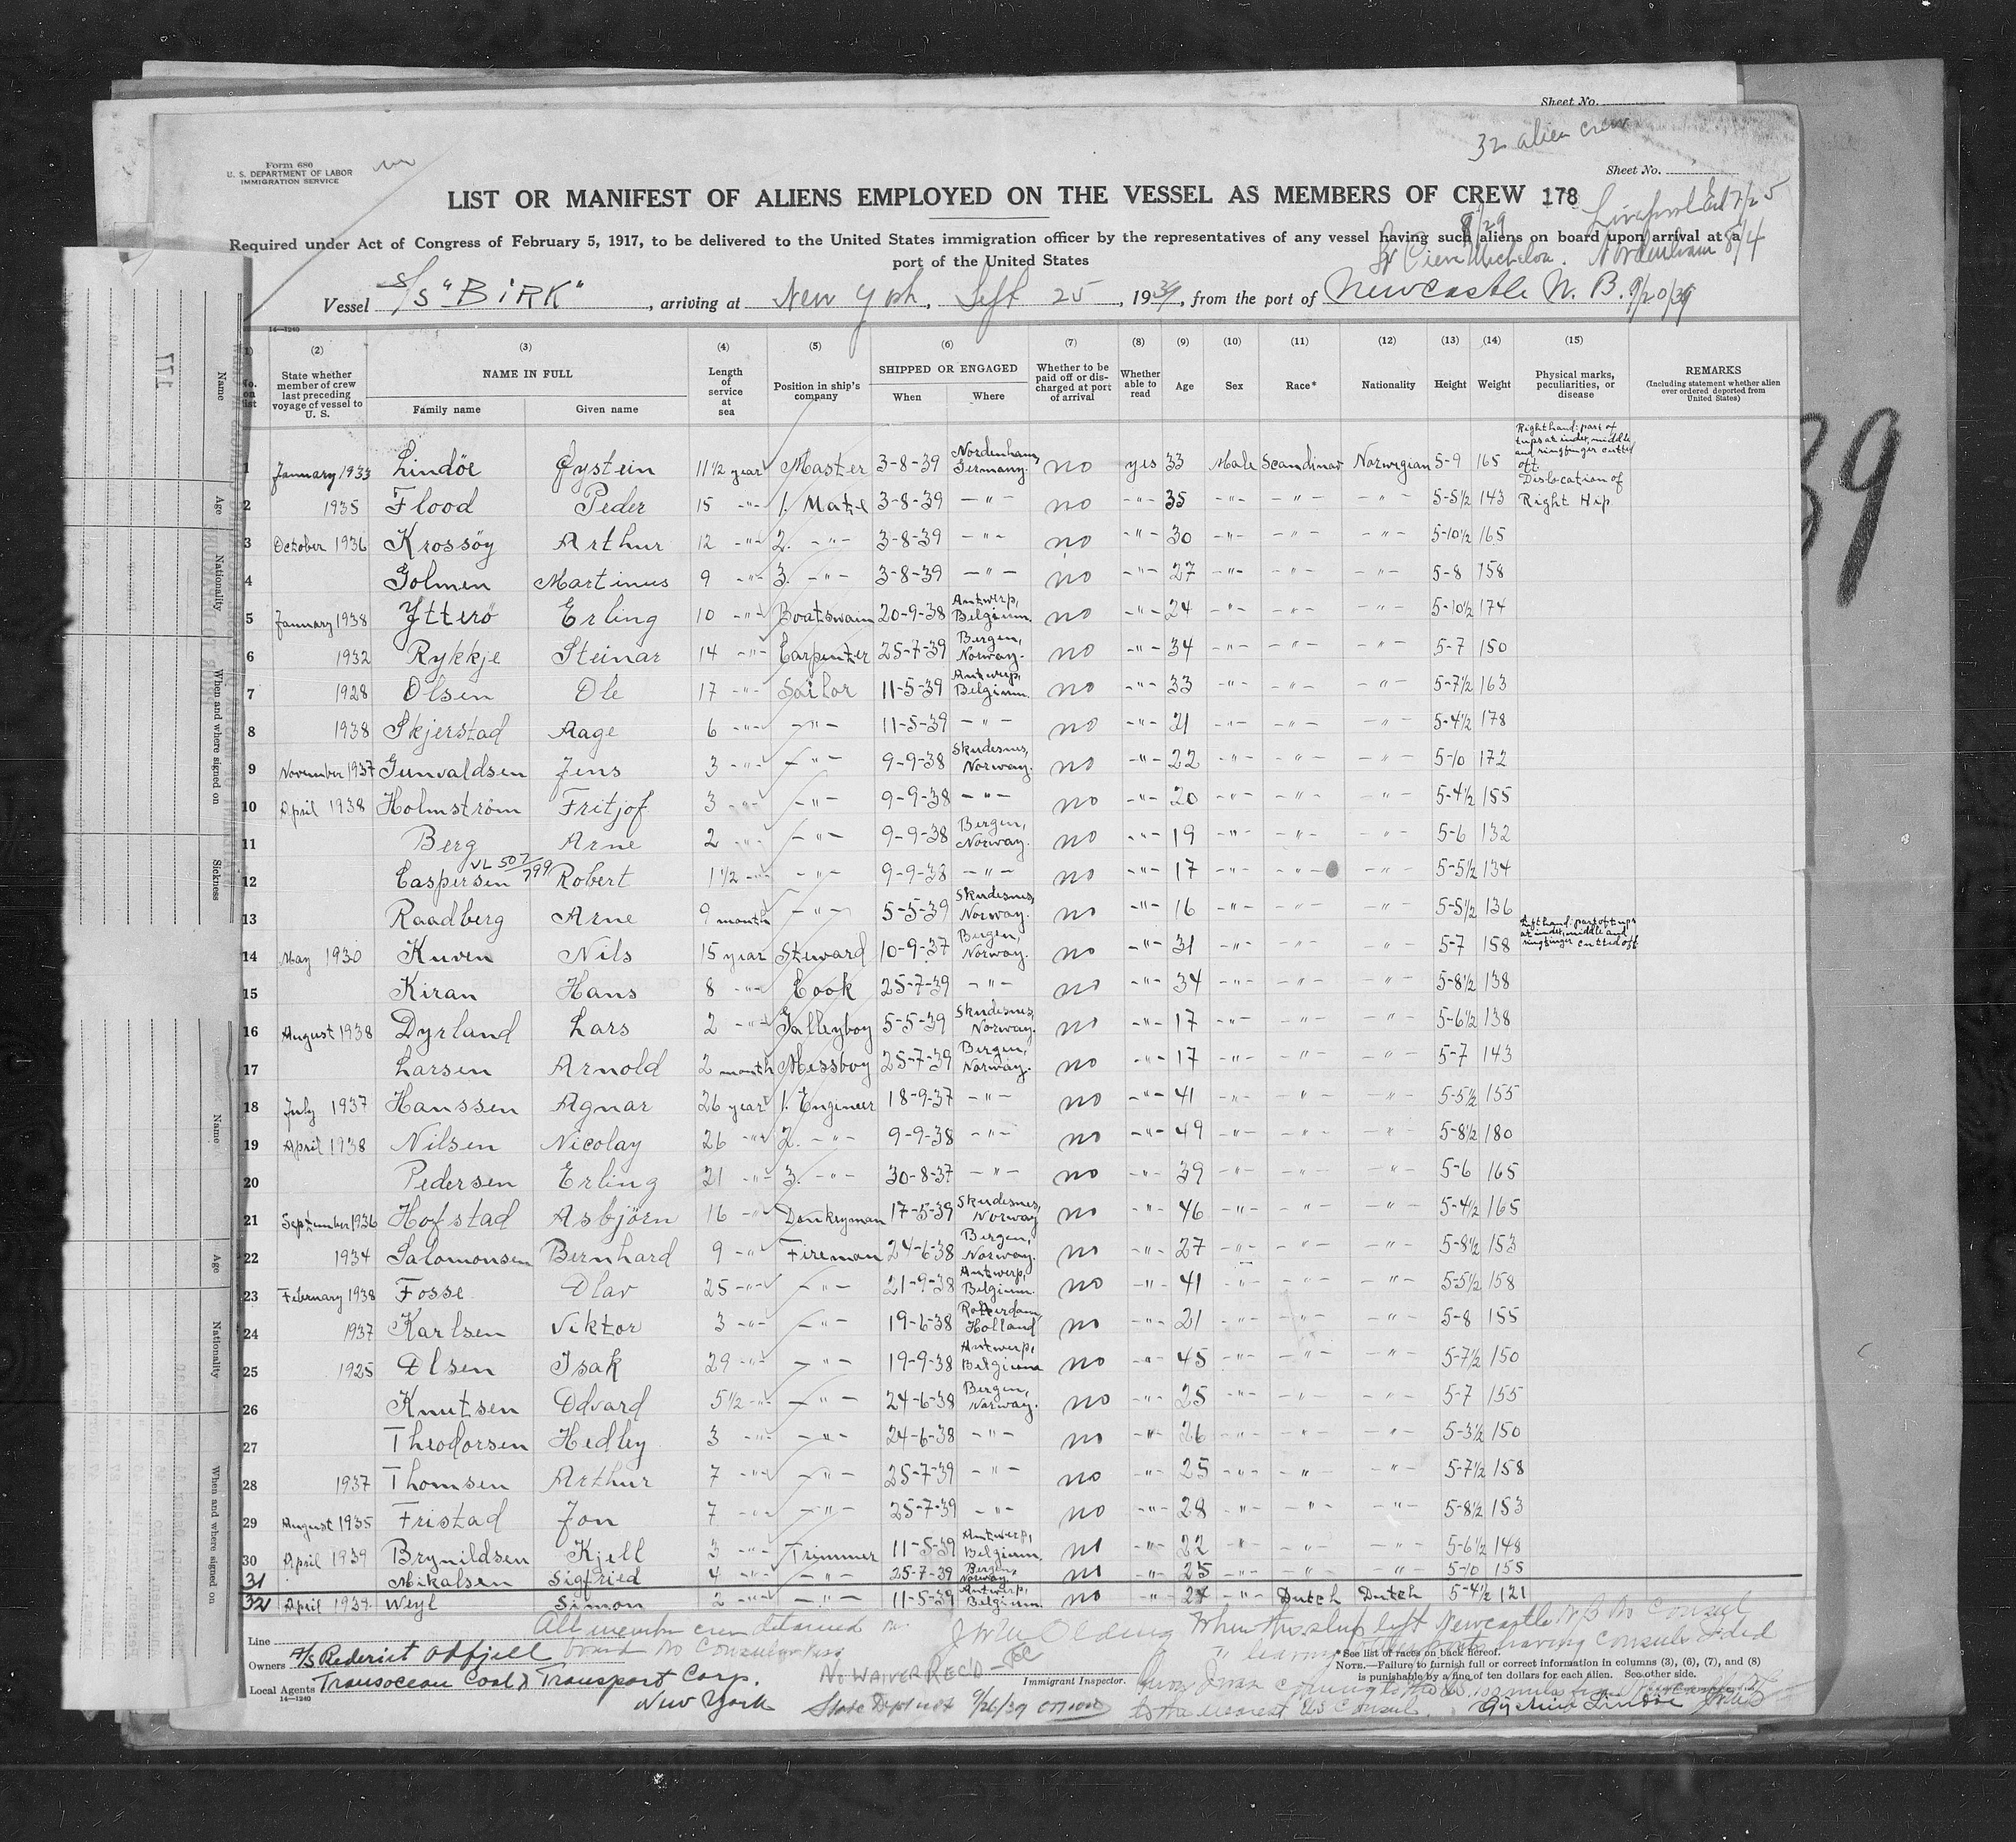 Sheet No.
32 alien crew
Form 680
U. S. DEPARTMENT OF LABOR
IMMIGRATION SERVICE
Sheet No.
LIST OR MANIFEST OF ALIENS EMPLOYED ON THE VESSEL AS MEMBERS OF CREW 178
Liverpool 7/25
8/29
Required under Act of Congress of February 5, 1917, to be delivered to the United States immigration officer by the representatives of any vessel having such aliens on board upon arrival at a
port of the United States
Nordenham 8/4
Vessel S/S "BIRK", arriving at New York, Sept 25, 1939, from the port of Newcastle N. B. 9/20/39
14—1240
(1) (2) (3) (4) (5) (6) (7) (8) (9) (10) (11) (12) (13) (14) (15)
No. on list State whether member of crew last preceding voyage of vessel to U. S. NAME IN FULL Family name Given name Length of service at sea Position in ship's company SHIPPED OR ENGAGED When Where Whether to be paid off or discharged at port of arrival Whether able to read Age Sex Race* Nationality Height Weight Physical marks, peculiarities, or disease REMARKS (Including statement whether alien ever ordered deported from United States)
1 January 1933 Lindöe Øystein 11 1/2 year Master 3-8-39 Nordenham, Germany. no yes 33 Male Scandinav Norwegian 5-9 165 Right hand: part of tups at index, middle and ringfinger cutted off.
2 1935 Flood Peder 15 -"- 1. Mate 3-8-39 -"- no -"- 35 -"- -"- -"- 5-5 1/2 143 Dislocation of Right Hip
3 October 1936 Krossöy Arthur 12 -"- 2. -"- 3-8-39 -"- no -"- 30 -"- -"- -"- 5-10 1/2 165
4 Golmen Martinus 9 -"- 3. -"- 3-8-39 -"- no -"- 27 -"- -"- -"- 5-8 158
5 January 1938 Ytterö Erling 10 -"- Boatswain 20-9-38 Antwerp, Belgium. no -"- 24 -"- -"- -"- 5-10 1/2 174
6 1932 Rykkje Steinar 14 -"- Carpenter 25-7-39 Bergen, Norway. no -"- 34 -"- -"- -"- 5-7 150
7 1928 Olsen Ole 17 -"- Sailor 11-5-39 Antwerp, Belgium. no -"- 33 -"- -"- -"- 5-7 1/2 163
8 1938 Skjerstad Aage 6 -"- -"- 11-5-39 -"- no -"- 21 -"- -"- -"- 5-4 1/2 178
9 November 1937 Gunvaldsen Jens 3 -"- -"- 9-9-38 Skudesnes, Norway. no -"- 22 -"- -"- -"- 5-10 172
10 April 1938 Holmström Fritjof 3 -"- -"- 9-9-38 -"- no -"- 20 -"- -"- -"- 5-4 1/2 155
11 Berg Arne 2 -"- -"- 9-9-38 Bergen, Norway. no -"- 19 -"- -"- -"- 5-6 132
VL 507/799
12 Caspersen Robert 1 1/2 -"- -"- 9-9-38 -"- no -"- 17 -"- -"- -"- 5-5 1/2 134
13 Raadberg Arne 9 month -"- 5-5-39 Skudesnes, Norway. no -"- 16 -"- -"- -"- 5-5 1/2 136
14 May 1930 Kuven Nils 15 year Steward 10-9-37 Bergen, Norway. no -"- 31 -"- -"- -"- 5-7 158 Left hand: part of tups at index, middle and ringfinger cutted off
15 Kiran Hans 8 -"- Cook 25-7-39 -"- no -"- 34 -"- -"- -"- 5-8 1/2 138
16 August 1938 Dyrlund Lars 2 -"- Galleyboy 5-5-39 Skudesnes, Norway. no -"- 17 -"- -"- -"- 5-6 1/2 138
17 Larsen Arnold 2 month Messboy 25-7-39 Bergen, Norway. no -"- 17 -"- -"- -"- 5-7 143
18 July 1937 Hanssen Agnar 26 year 1. Engineer 18-9-37 -"- no -"- 41 -"- -"- -"- 5-5 1/2 155
19 April 1938 Nilsen Nicolay 26 -"- 2. -"- 9-9-38 -"- no -"- 49 -"- -"- -"- 5-8 1/2 180
20 Pedersen Erling 21 -"- 3. -"- 30-8-37 -"- no -"- 39 -"- -"- -"- 5-6 165
21 September 1936 Hofstad Asbjörn 16 -"- Donkeyman 17-5-39 Skudesnes, Norway no -"- 46 -"- -"- -"- 5-4 1/2 165
22 1934 Salomonsen Bernhard 9 -"- Fireman 24-6-38 Bergen, Norway. no -"- 27 -"- -"- -"- 5-8 1/2 153
23 February 1938 Fosse Olav 25 -"- -"- 21-9-38 Antwerp, Belgium. no -"- 41 -"- -"- -"- 5-5 1/2 158
24 1937 Karlsen Viktor 3 -"- -"- 19-6-38 Rotterdam, Holland no -"- 21 -"- -"- -"- 5-8 155
25 1925 Olsen Isak 29 -"- -"- 19-9-38 Antwerp, Belgium no -"- 45 -"- -"- -"- 5-7 1/2 150
26 Knutsen Odvard 5 1/2 -"- -"- 24-6-38 Bergen, Norway. no -"- 25 -"- -"- -"- 5-7 155
27 Theodorsen Hedley 3 -"- -"- 24-6-38 -"- no -"- 26 -"- -"- -"- 5-3 1/2 150
28 1937 Thomsen Arthur 7 -"- -"- 25-7-39 -"- no -"- 25 -"- -"- -"- 5-7 1/2 158
29 August 1935 Fristad Jon 7 -"- -"- 25-7-39 -"- no -"- 28 -"- -"- -"- 5-8 1/2 153
30 April 1939 Brynildsen Kjell 3 -"- Trimmer 11-5-39 Antwerp, Belgium. no -"- 22 -"- -"- -"- 5-6 1/2 148
31 Mikalsen Sigfried 4 -"- -"- 25-7-39 Bergen, Norway. no -"- 25 -"- -"- -"- 5-10 155
32 April 1939. Weyl Simon 2 -"- -"- 11-5-39 Antwerp, Belgium. no -"- 24 -"- Dutch Dutch 5-4 1/2 121
All member crew detained on
board no Consular visa
Line
Owners A/S Rederiet Odfjell
Local Agents Transocean Coal & Transport Corp.
New York
14—1240
NO WAIVER REC'D
State Dept 9/26/39
Immigrant Inspector.
When this ship left Newcastle N.B. no Consul
*See list of races on back hereof.
NOTE.—Failure to furnish full or correct information in columns (3), (6), (7), and (8)
is punishable by a fine of ten dollars for each alien. See other side.
to the nearest US Consul.
Øystein Lindöe
39
171
Name
Age
Nationality
When and where signed on
Sickness
Name
Age
Nationality
When and where signed on